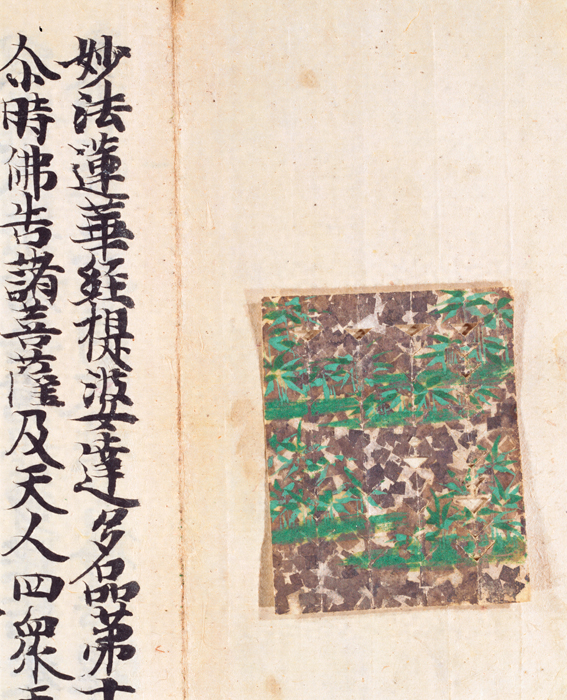 妙法蓮華經提婆達多品第十
尒時佛告諸菩薩及天人四衆